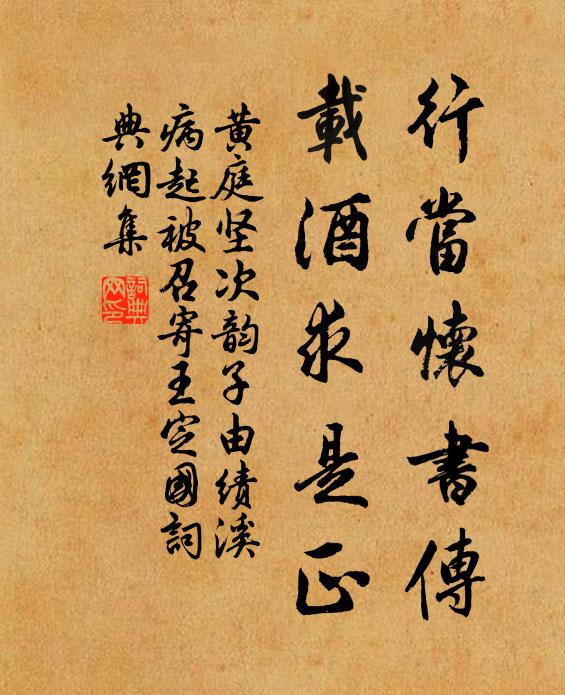 行當懷書傳
載酒求是正
黄庭坚次韵子由績溪
病起被召寄王定國詞
典網集
詞典
网印